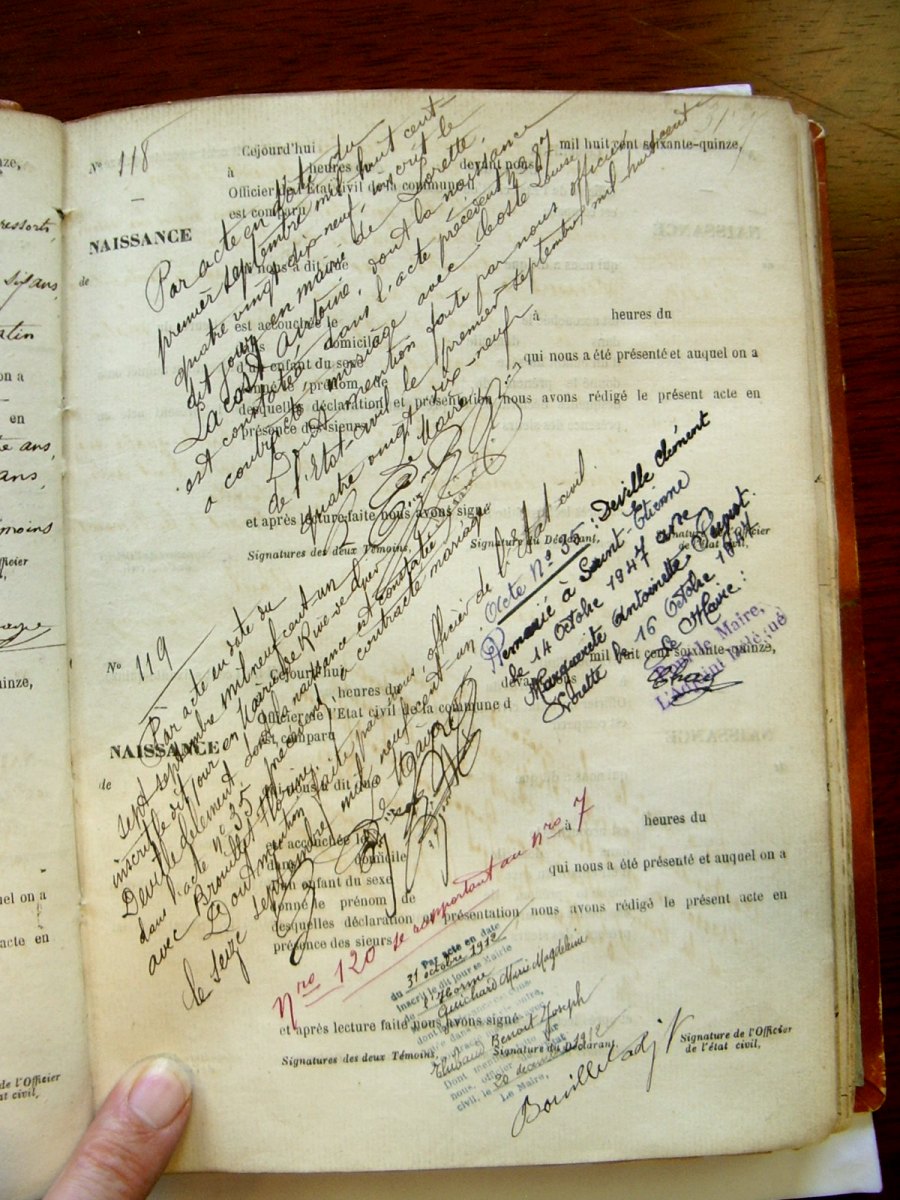 N° 118
Cejourd'hui mil huit cent soixante-quinze,
à heures du devant nous
Officier de l'Etat civil de la commune d
est comparu
NAISSANCE
de
qui nous a dit que
est accouchée le à heures du
dans domicile
d'un enfant du sexe qui nous a été présenté et auquel on a
donné le prénom de
desquelles déclaration et présentation nous avons rédigé le présent acte en
présence des sieurs
et après lecture faite nous avons signé
Signatures des deux Témoins, Signature du Déclarant, Signature de l'Officier
de l'état civil,
Par acte en date du
premier septembre mil huit cent
quatre vingt dix-neuf, inscrit le
dit jour en mairie de Lorette,
Lacoste Antoine, dont la naissance
est constatée dans l'acte précédent n° 87
a contracté mariage avec
Dont mention faite par nous officier
de l'Etat-civil le premier septembre mil-huit-cent
quatre vingt dix-neuf
Le Maire
Acte N° 35: Deville Clément
Remarié à Saint-Etienne
le 14 Octobre 1947 avec
Marguerite Antoinette
Lorette le 16 Octobre 1947
Le Maire:
Pour le Maire,
L'Adjoint Délégué
N° 119
Cejourd'hui mil huit cent soixante-quinze,
à heures du devant nous
Officier de l'Etat civil de la commune d
est comparu
NAISSANCE
de
qui nous a dit que
est accouchée le à heures du
dans domicile
d'un enfant du sexe qui nous a été présenté et auquel on a
donné le prénom de
desquelles déclaration et présentation nous avons rédigé le présent acte en
présence des sieurs
et après lecture faite nous avons signé
Signatures des deux Témoins, Signature du Déclarant, Signature de l'Officier
de l'état civil,
Par acte en date du
sept septembre mil neuf cent un
inscrit le dit jour en Mairie de Rive de Gier
Deville Clément dont la naissance est constatée
dans l'acte n° 35 précédent, a contracté mariage
avec
Dont mention faite par nous, officier de l'état civil.
le seize septembre mil neuf cent un
Le Maire
Nro 120 se rapportant au nro 7
Par acte en date
du 31 octobre 1912
inscrit le dit jour en Mairie
de l'Horme
Guichard Marie Magdeleine
Thibaud Benoit Joseph
Dont mention faite par
nous, officier de l'état
civil, le 20 décembre 1912
Le Maire,